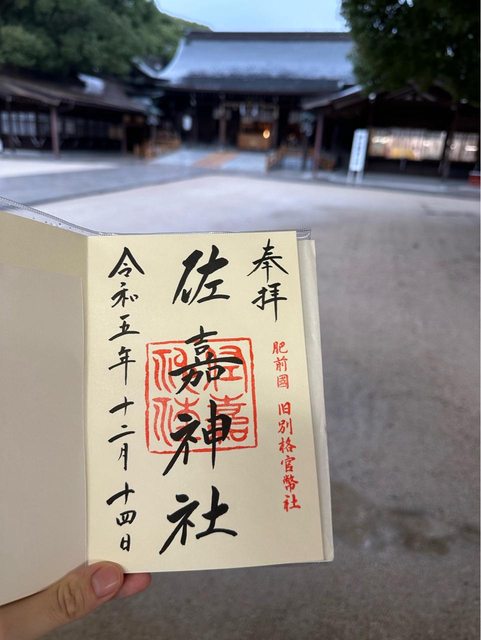 奉拝
肥前國 旧別格官幣社
佐嘉神社
令和五年 十二月 十四日